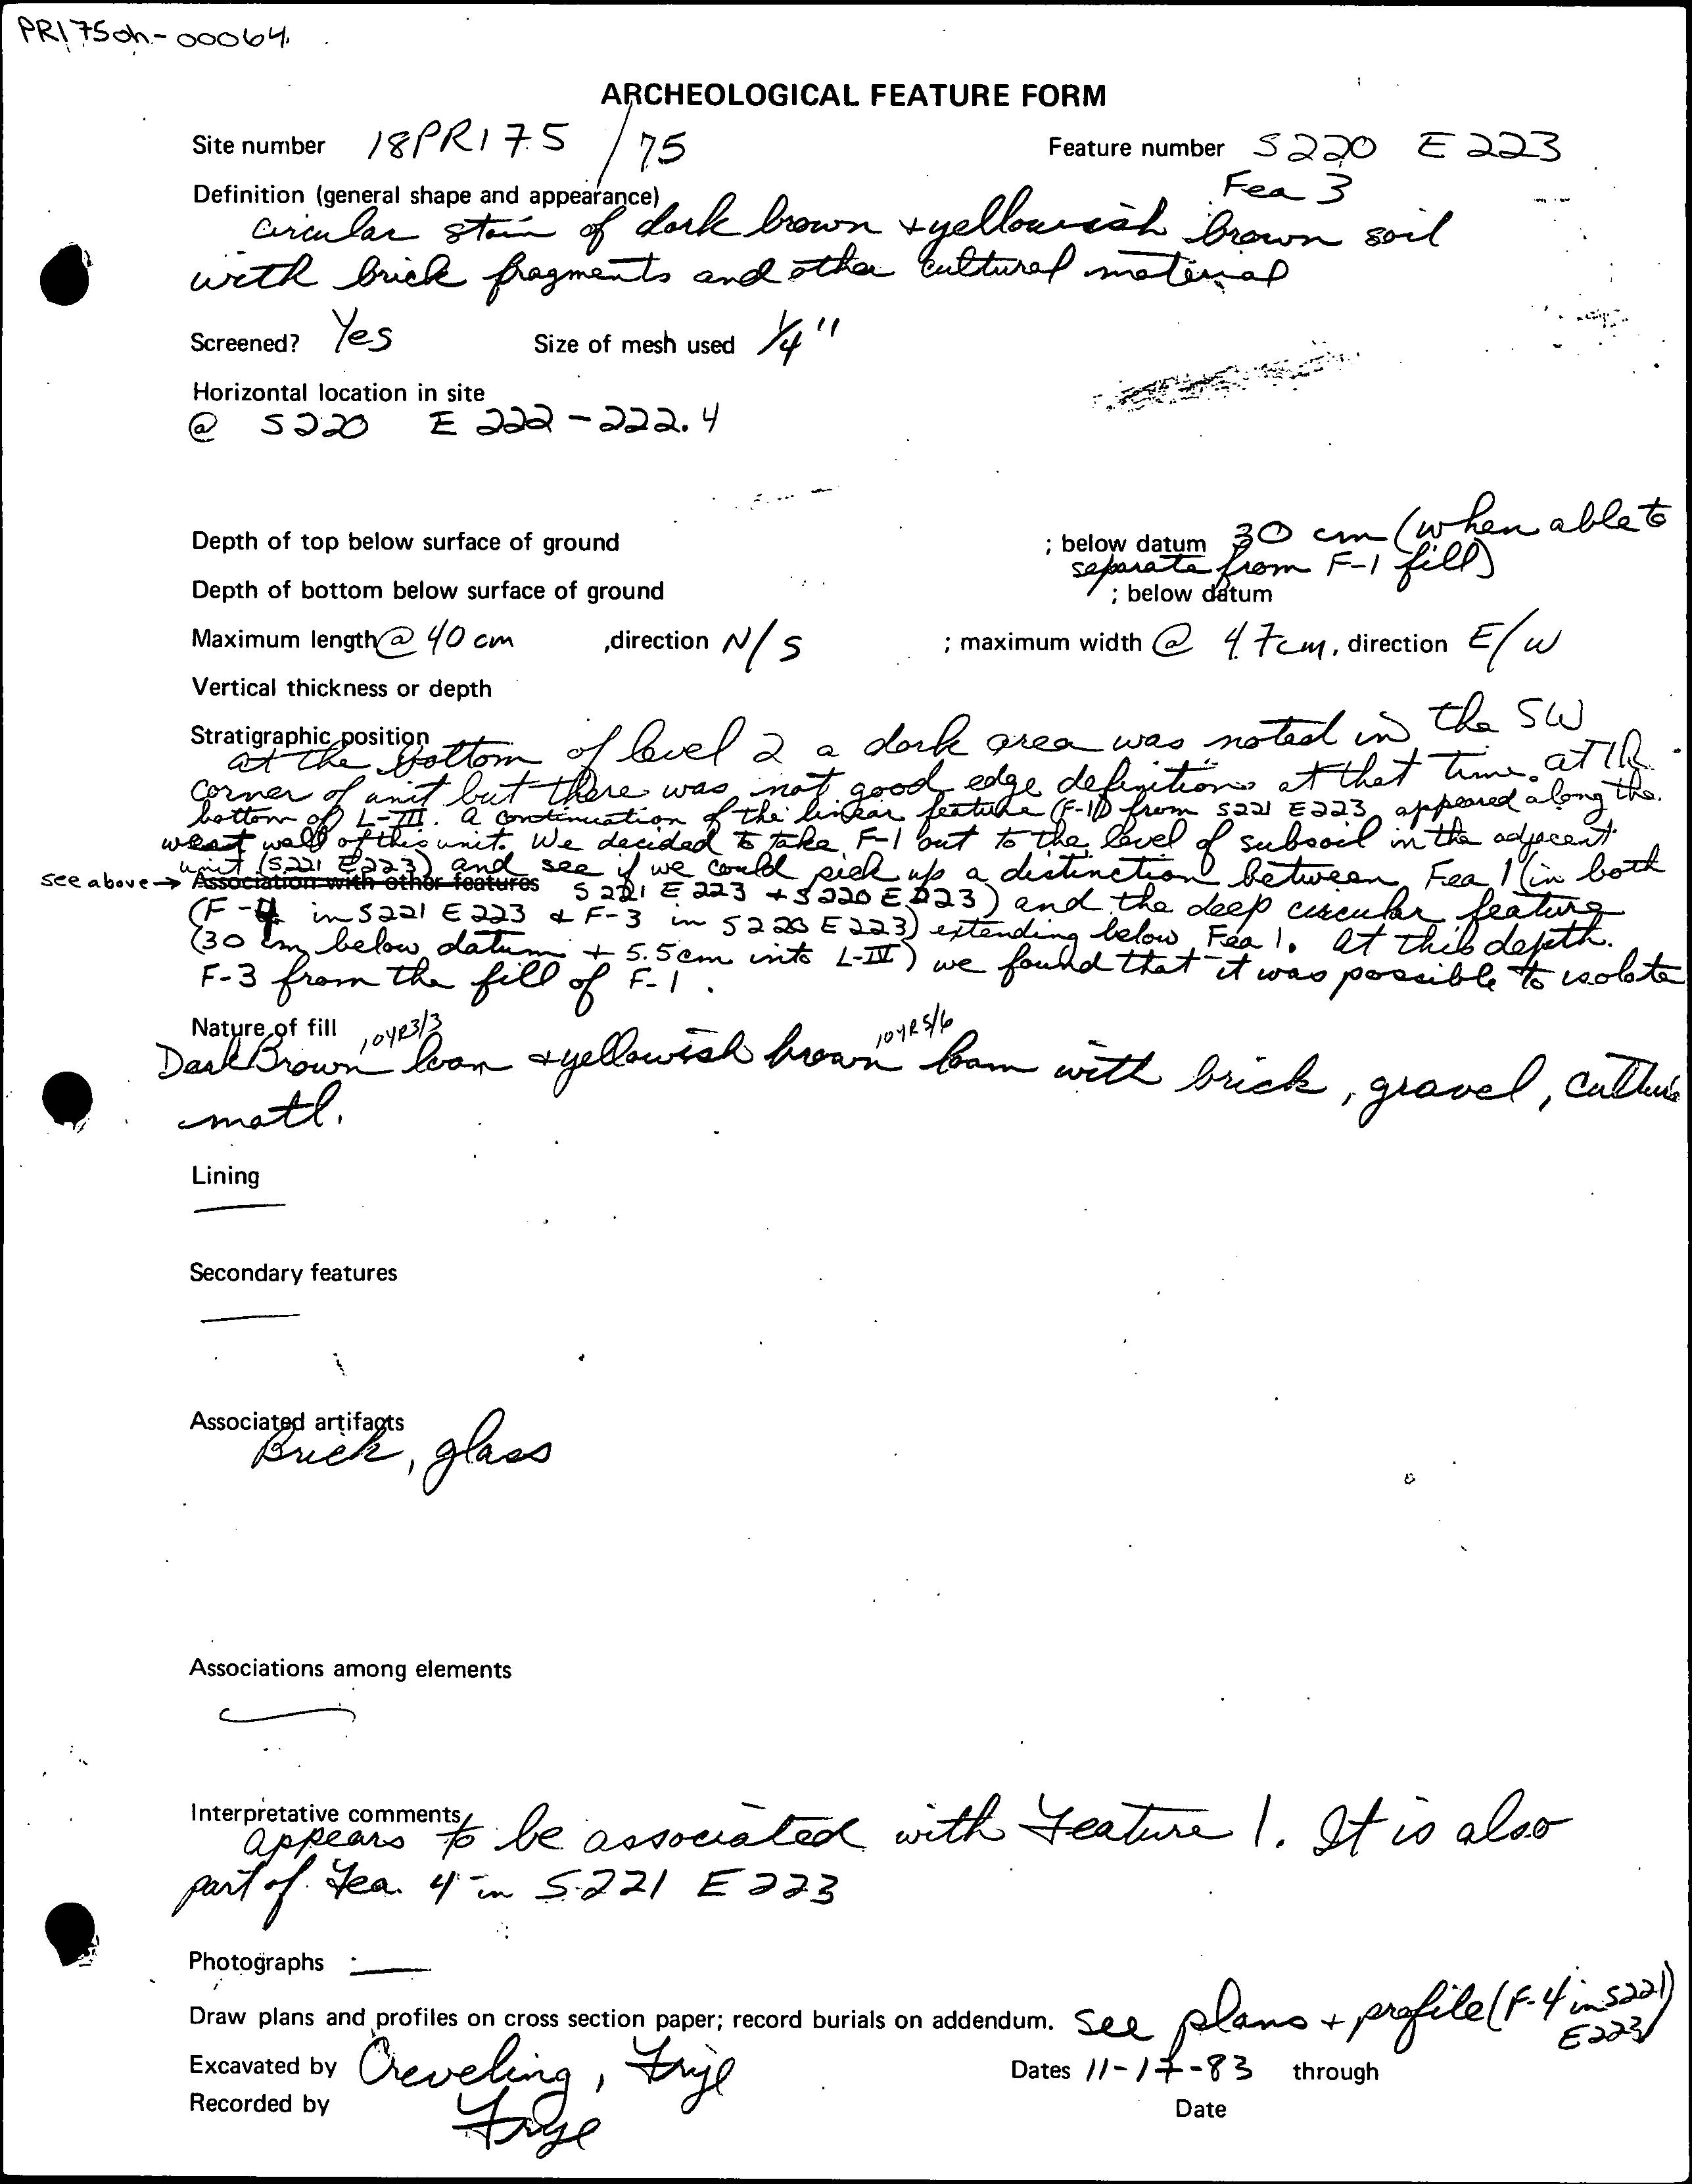 PR175oh-00064
ARCHEOLOGICAL FEATURE FORM
Site number 18PR175 / 75 Feature number S220 E223
Fea 3
Definition (general shape and appearance)
circular stain of dark brown + yellowish brown soil
with brick fragments and other cultural material
Screened? Yes Size of mesh used 1/4"
Horizontal location in site
@ S220 E 222 - 222.4
Depth of top below surface of ground ; below datum 30 cm (when able to
separate from F-1 fill)
Depth of bottom below surface of ground ; below datum
Maximum length @ 40 cm , direction N/S ; maximum width @ 47cm, direction E/W
Vertical thickness or depth
Stratigraphic position
at the bottom of level 2 a dark area was noted in the SW
corner of unit but there was not good edge definition at that time. at the
bottom of L-III. a continuation of the linear feature (F-1) from S221 E223 appeared along the
west wall of this unit. We decided to take F-1 out to the level of subsoil in the adjacent
unit (S221 E223) and see if we could pick up a distinction between Fea 1 (in both
see above → Association with other features S221 E223 + S220 E223) and the deep circular feature
(F-4 in S221 E223 & F-3 in S220 E223) extending below Fea 1. at this depth
(30 cm below datum + 5.5cm into L-IV) we found that it was possible to isolate
F-3 from the fill of F-1.
Nature of fill
Dark Brown 10YR3/3 loam + yellowish brown 10YR5/6 loam with brick, gravel,
matl.
Lining
Secondary features
Associated artifacts
Brick, glass
Associations among elements
Interpretative comments
appears to be associated with Feature 1. It is also
part of Fea. 4 in S221 E223
Photographs
Draw plans and profiles on cross section paper; record burials on addendum. See plans + profile (F-4 in S221
E223)
Excavated by Creveling, Frye Dates 11-17-83 through
Recorded by Frye Date